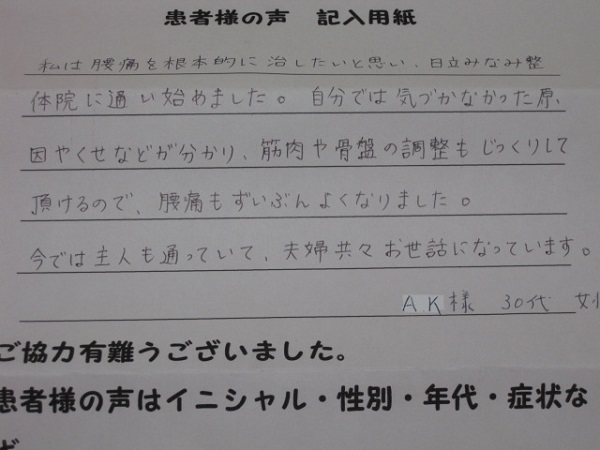 患者様の声 記入用紙
私は腰痛を根本的に治したいと思い、日立みなみ整
体院に通い始めました。自分では気づかなかった原、
因やくせなどが分かり、筋肉や骨盤の調整もじっくりして
頂けるので、腰痛もずいぶんよくなりました。
今では主人も通っていて、夫婦共々お世話になっています。
AK様 30代 女
ご協力有難うございました。
患者様の声はイニシャル・性別・年代・症状な
ど